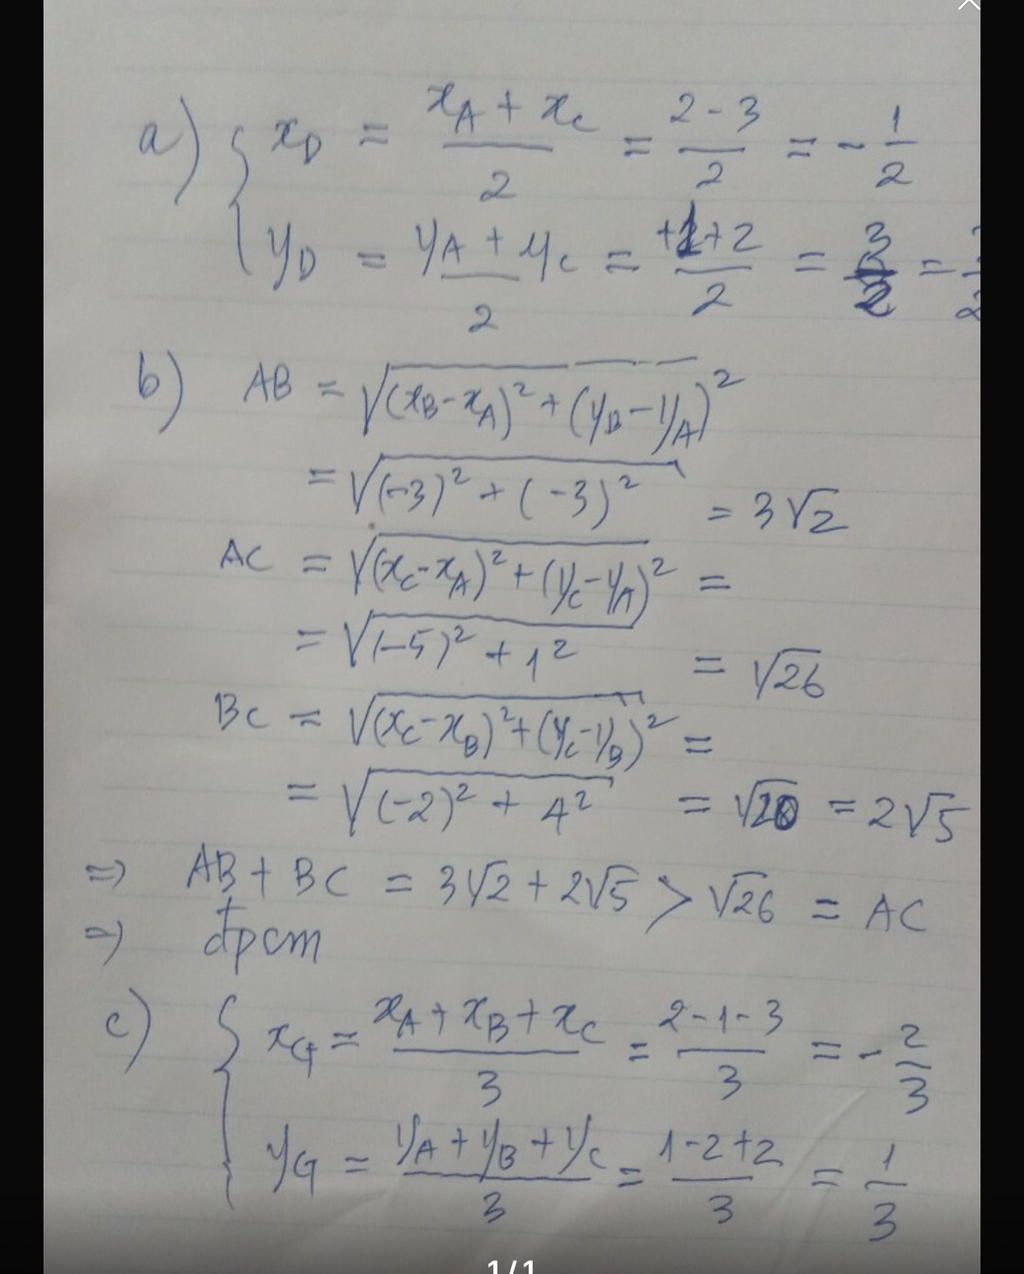 a) { x_D = (x_A + x_C)/2 = (2 - 3)/2 = - 1/2
y_D = (y_A + y_C)/2 = (+1 + 2)/2 = 3/2 =
b) AB = √(x_B - x_A)² + (y_B - y_A)²
= √(-3)² + (-3)² = 3√2
AC = √(x_C - x_A)² + (y_C - y_A)² =
= √(-5)² + 1² = √26
BC = √(x_C - x_B)² + (y_C - y_B)² =
= √(-2)² + 4² = √20 = 2√5
=> AB + BC = 3√2 + 2√5 > √26 = AC
=> đpcm
c) { x_G = (x_A + x_B + x_C)/3 = (2 - 1 - 3)/3 = - 2/3
y_G = (y_A + y_B + y_C)/3 = (1 - 2 + 2)/3 = 1/3
1/1